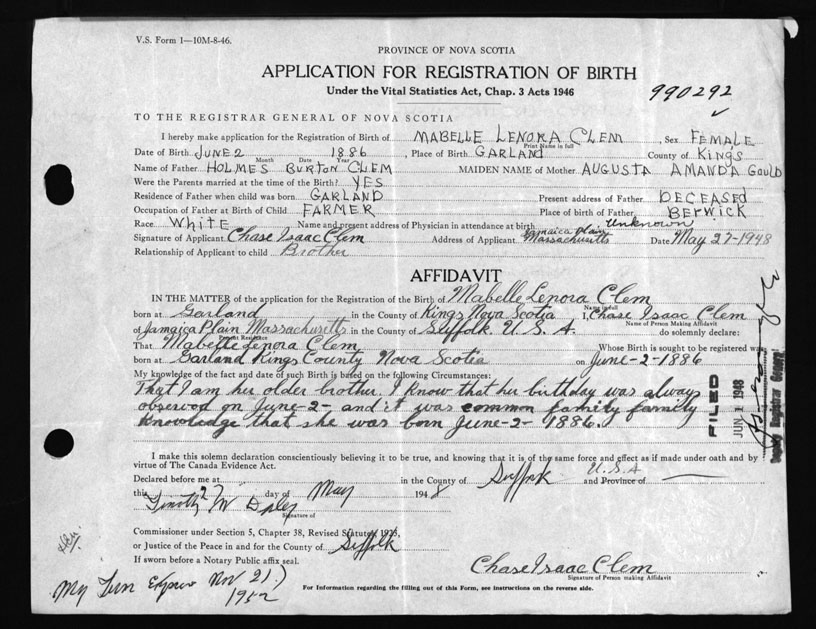 V.S. Form 1—10M-8-46.
PROVINCE OF NOVA SCOTIA
APPLICATION FOR REGISTRATION OF BIRTH
Under the Vital Statistics Act, Chap. 3 Acts 1946
990292
TO THE REGISTRAR GENERAL OF NOVA SCOTIA
I hereby make application for the Registration of Birth of MABELLE LENORA CLEM, Sex FEMALE
Print Name in full
Date of Birth JUNE 2 1886, Place of Birth GARLAND County of KINGS
Month Date Year
Name of Father HOLMES BURTON CLEM MAIDEN NAME of Mother AUGUSTA AMANDA Gould
Were the Parents married at the time of the Birth? YES
Residence of Father when child was born GARLAND Present address of Father DECEASED
Occupation of Father at Birth of Child FARMER Place of birth of Father BERWICK
Race White Name and present address of Physician in attendance at birth Unknown
Signature of Applicant Chase Isaac Clem Address of Applicant Jamaica Plain Massachusetts Date May 27-1948
Relationship of Applicant to child Brother
AFFIDAVIT
IN THE MATTER of the application for the Registration of the Birth of Mabelle Lenora Clem
Name in full
born at Garland in the County of Kings Nova Scotia I, Chase Isaac Clem
Name of Person Making Affidavit
of Jamaica Plain Massachusetts in the County of Suffolk. U.S.A. do solemnly declare:
Present Residence
That Mabelle Lenora Clem Whose Birth is sought to be registered was
born at Garland Kings County Nova Scotia on June-2-1886
My knowledge of the fact and date of such Birth is based on the following Circumstances:
That I am her older brother. I know that her birthday was always
observed on June-2- and it was common family family
knowledge that she was born June-2-1886.
FILED
JUN 1 1948
Deputy Registrar General
I make this solemn declaration conscientiously believing it to be true, and knowing that it is of the same force and effect as if made under oath and by
virtue of The Canada Evidence Act.
Declared before me at in the County of Suffolk and Province of U.S.A
this 27 day of May 1948
Timothy W Daley
Signature of
Commissioner under Section 5, Chapter 38, Revised Statutes 1923,
or Justice of the Peace in and for the County of Suffolk
If sworn before a Notary Public affix seal.
Chase Isaac Clem
Signature of Person making Affidavit
My Term Expires Nov 21
1952
For Information regarding the filling out of this Form, see instructions on the reverse side.